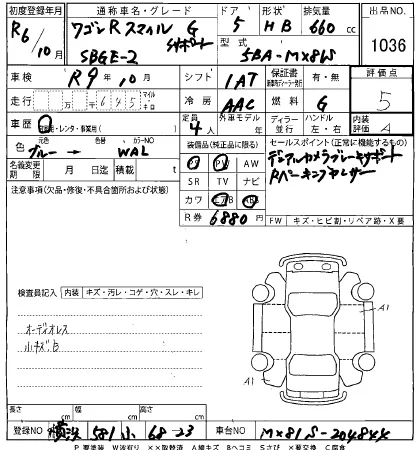 初度登録年月 通称車名・グレード ドア 形状 排気量 出品NO.
R6/10月 ワゴンRスマイル G 5 HB 660cc 1036
SBGE-2 型式 5BA-MX81S
車検 R9年10月 シフト 1AT 保証書 有・無 評価点
走行 万 千645 マイル キロ 冷房 AAC 燃料 G 5
車歴 自家用・レンタ・事業用( ) 定員 4人 外車モデル 年 ディーラー 並行 ハンドル 左・右 内装評価 A
色 元色 ブルー→ 色替 カラーNO WAL 装備品(純正品に限る) セールスポイント(正常に機能するもの)
名義変更期限 月 日迄 積載 t PS PW AW デュアルカメラブレーキサポート
注意事項(欠品・修復・不具合箇所および状態) SR TV ナビ Rパーキングセンサー
カワ エアB ABS
R券 6880円 FW キズ・ヒビ割・リペア跡・X要
検査員記入 内装 キズ・汚レ・コゲ・穴・スレ・キレ
A1
オーディオレス
小キズ
A1
長さ cm 幅 cm 高さ cm
登録NO 横浜 581 68-23 車台NO MX81S-204844
P 要塗装 W波有り ××取替済 A線キズ Bヘコミ Sさび ×要交換 C腐食